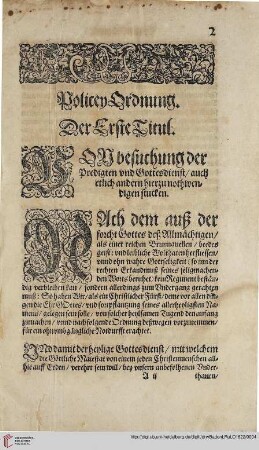 2
Policey Ordnung.
Der Erste Titul.
VON besuchung der
Predigten vnd Gottesdienst / auch
etlich andern hierzu nothwen-
digen stucken.
NAch dem auß der
forcht Gottes deß Allmächtigen /
als einer reichen Brunnquellen / beedes
geist: vnd leibliche Wolthaten herfliessen /
vnnd ohn wahre Gottseligkeit / so in der
rechten Erkandtnuß seines seligmachen-
den Worts beruhet / kein Regiment bestän-
dig verbleiben kan / sondern allerdings zum Vndergang gerahten
muß: So haben Wir / als ein Christlicher Fürst / deme vor allen din-
gen die Ehr Gottes / vnd fortpflantzung seines allerheyligsten Na-
mens / gelegen sein solle / von solcher heylsamen Tugend den anfang
zumachen / vnnd nachfolgende Ordnung deßwegen vorzunemmen /
für ein ohnvmbgängliche Notturfft erachtet.
VNd damit der heylige Gottesdienst / mit welchem
die Göttliche Mäiestat von einem jeden Christenmenschen all-
hie auff Erden / verehrt sein will / bey vnsern anbefohlenen Vnder-
A ij
thanen /